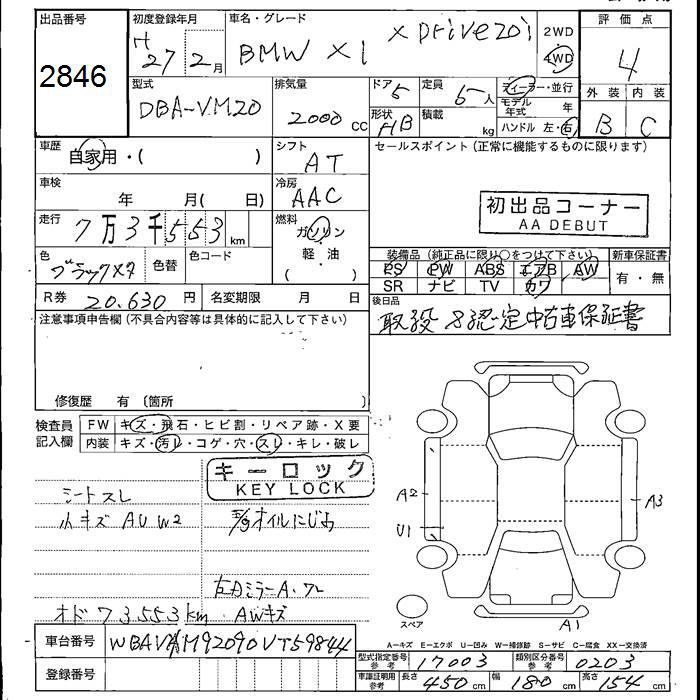 出品番号 初度登録年月 車名・グレード 評価点
2846 H 27年 2月 BMW X1 X Drive20i 2WD 4WD 4
型式 排気量 ドア 5 定員 5人 ディーラー・並行 外装 内装
DBA-VM20 2000cc 形状 HB 積載 kg モデル年式 年 B C
ハンドル 左・右
車歴 自家用・( ) シフト AT セールスポイント(正常に機能するものに限ります)
車検 年 月( 日) 冷房 AAC
初出品コーナー
AA DEBUT
走行 7万3千553km 燃料 ガソリン
軽・油
( )
色 ブラックメタ 色替 色コード
装備品(純正品に限り○をつけて下さい) 新車保証書
PS PW ABS エアB AW 有・無
SR ナビ TV カワ
R券 20.630円 名変期限 月 日 後日品
取説 認定中古車保証書
注意事項申告欄(不具合内容等は具体的に記入して下さい)
修復歴 有(箇所
検査員記入欄 FW キズ・飛石・ヒビ割・リペア跡・X要
内装 キズ・汚レ・コゲ・穴・スレ・キレ・破レ
キーロック
KEY LOCK
シートスレ
小キズ AU W2 オイルにじみ
A2 A3
U1
左ドアミラーA・ワレ
オド 73.553km AWキズ
スペア A1
A=キズ E=エクボ U=凹み W=補修跡 S=サビ C=腐食 XX=交換済
車台番号 WBAVM92090VT59844
型式指定番号 参考 17003 類別区分番号 参考 0203
登録番号
車庫証明用 参考 長さ 450cm 幅 180cm 高さ 154cm